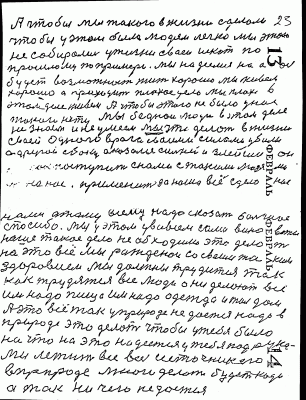 А чтобы мы такого в жизни сделали 23
чтобы у этом была людям легко мы этого
не собирали у жизни сваей искот по
прошлому попримеру. Мы надемся на
будет возможност жит хорошо мы живем
хорошо а приходит плохое дело мы плох в
этом деле живем А чтобы этого не было у нас
такого нету. Мы бедной люди в этом деле
не знаем и не умеем мы это делат в жизни
сваей Одного врага сваими силами убили
а другой с боку оказался силней и злейший он
поступит с нами с такими
на нас, применит до нашо всё
13 ФЕВРАЛЬ
нами этому всему надо сказат большое
спосибо. Мы у этом увидием сами
наше такое дело не обходимо это делат
на это всё мы рождение со сваим
здоровием мы должны трудится так
как трудятся все люди они делают всё
им надо пища им надо одежда и там дом
А это всё так у природе не дается надо в
природе это делат чтобы у тебя было
на что на это надеется у тебя под рука-
ми летит все всё источникого
в природе много делат будет надо
а так ни чего не дается
14 ФЕВРАЛЬ